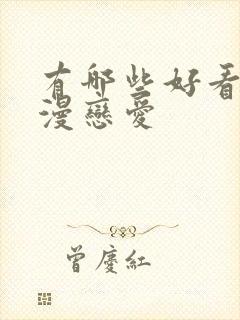 有哪些好看
漫戀愛
曾慶紅